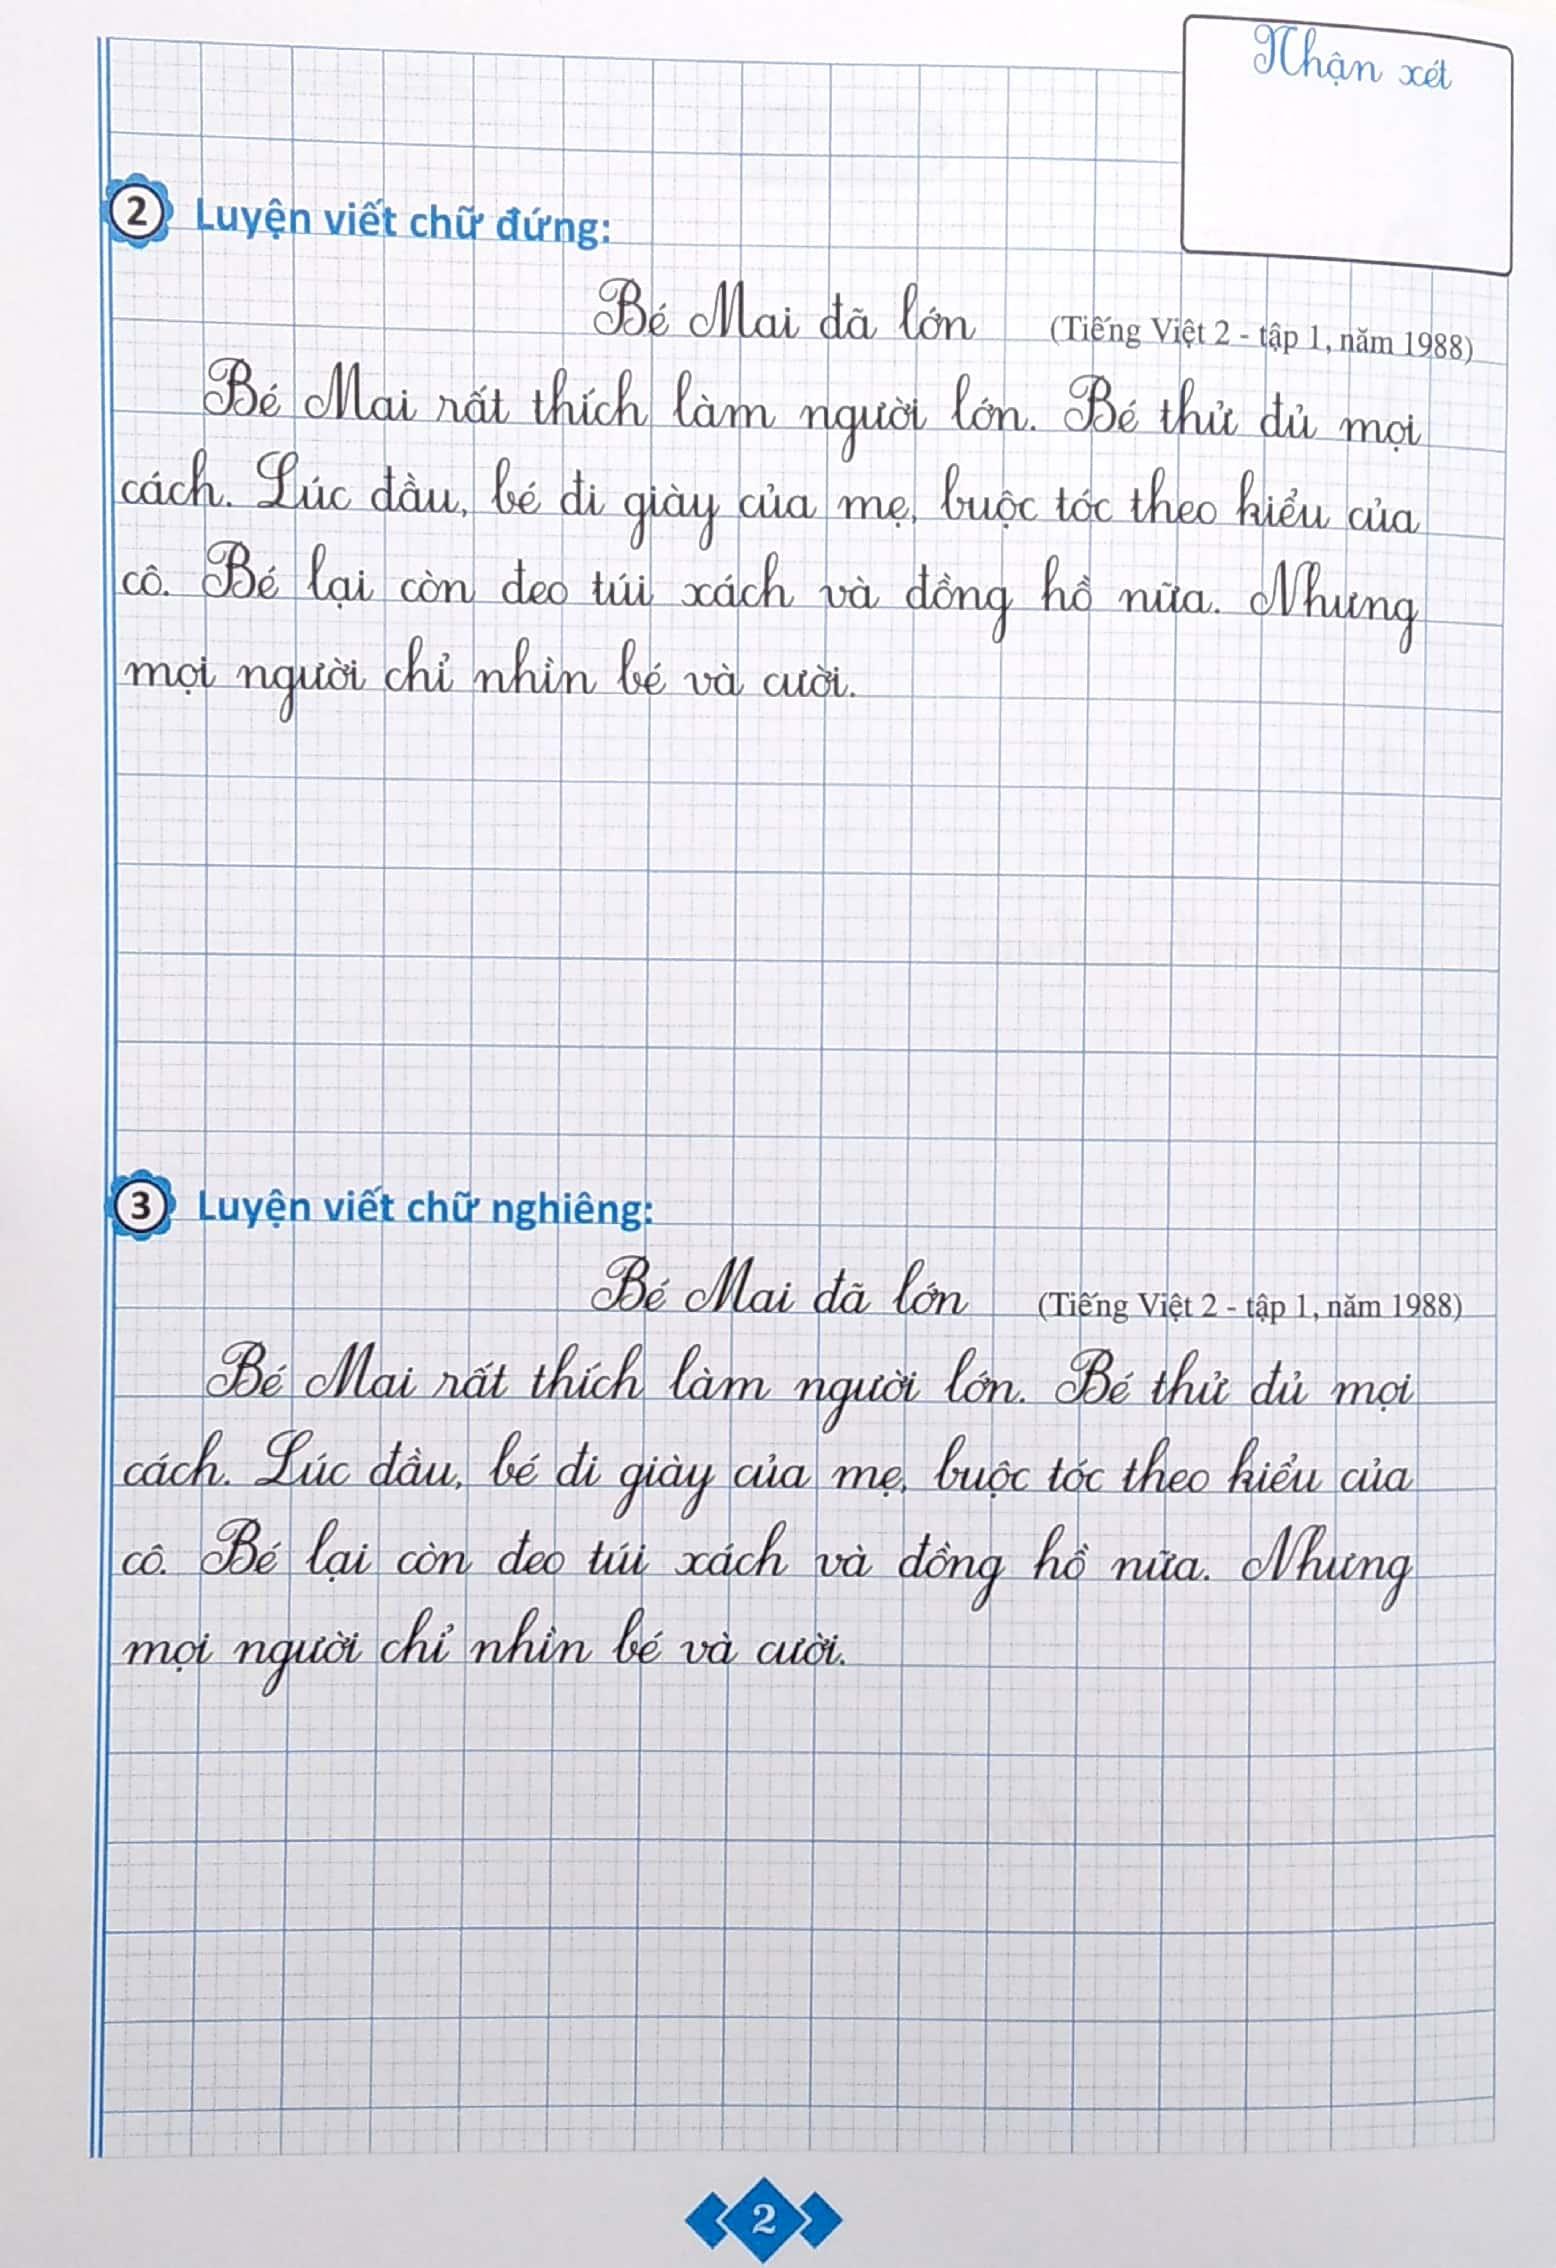 Nhận xét
2 Luyện viết chữ đứng:
Bé Mai đã lớn (Tiếng Việt 2 - tập 1, năm 1988)
Bé Mai rất thích làm người lớn. Bé thử đủ mọi
cách. Lúc đầu, bé đi giày của mẹ, buộc tóc theo kiểu của
cô. Bé lại còn đeo túi xách và đồng hồ nữa. Nhưng
mọi người chỉ nhìn bé và cười.
3 Luyện viết chữ nghiêng:
Bé Mai đã lớn (Tiếng Việt 2 - tập 1, năm 1988)
Bé Mai rất thích làm người lớn. Bé thử đủ mọi
cách. Lúc đầu, bé đi giày của mẹ, buộc tóc theo kiểu của
cô. Bé lại còn đeo túi xách và đồng hồ nữa. Nhưng
mọi người chỉ nhìn bé và cười.
2